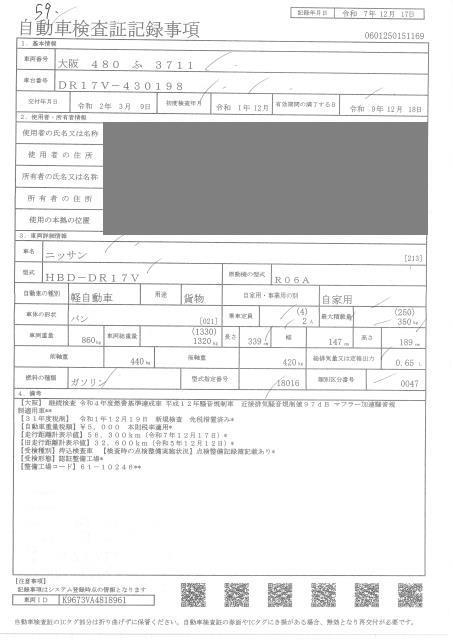 59.
記録年月日 令和 7年12月 17日
自動車検査証記録事項
0601250151169
1. 基本情報
車両番号 大阪 480 ふ 3711
車台番号 DR17V-430198
交付年月日 令和 2年 3月 9日 初度検査年月 令和 1年12月 有効期間の満了する日 令和 9年12月 18日
2. 使用者・所有者情報
使用者の氏名又は名称
使用者の住所
所有者の氏名又は名称
所有者の住所
使用の本拠の位置
3. 車両詳細情報
車名 ニッサン [213]
型式 HBD-DR17V 原動機の型式 R06A
自動車の種別 軽自動車 用途 貨物 自家用・事業用の別 自家用
車体の形状 バン [021] 乗車定員 (4) 2人 最大積載量 (250) 350kg
車両重量 860kg 車両総重量 (1330) 1320kg 長さ 339cm 幅 147cm 高さ 189cm
前軸重 440kg 後軸重 420kg 総排気量又は定格出力 0.65L
燃料の種類 ガソリン 型式指定番号 18016 類別区分番号 0047
4. 備考
【大阪】 継続検査 令和4年度燃費基準達成車 平成12年騒音規制車 近接排気騒音規制値97dB マフラー加速騒音規
制適用車**
【31年度税制】 令和1年12月19日 新規検査 先税措置済み*
【自動車重量税額】¥5,000 本則税率適用*
【走行距離計表示値】56,300km(令和7年12月17日)*
【旧走行距離計表示値】32,600km(令和5年12月12日)*
【受検種別】持込検査車 【検査時の点検整備実施状況】点検整備記録簿記載あり*
【受検形態】認証整備工場*
【整備工場コード】61-10246**
【注意事項】
記録事項はシステム登録時点の情報となります
車両ID K9673VA4818961
自動車検査証のICタグ部分は折り曲げずに保管ください。自動車検査証の券面やICタグにき損がある場合、無効となり再交付が必要です。